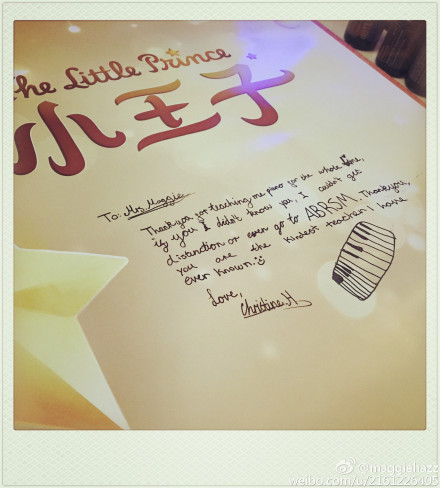 The Little Prince
小王子
To: Mrs. Maggie
Thank you for teaching me piano for the whole time,
if you I didn't know you, I couldn't get
distinction or even go to ABRSM. Thank you,
you are the kindest teacher I have
ever known.
Love,
Christine.H
@maggiehazz
weibo.com/u/2161226405